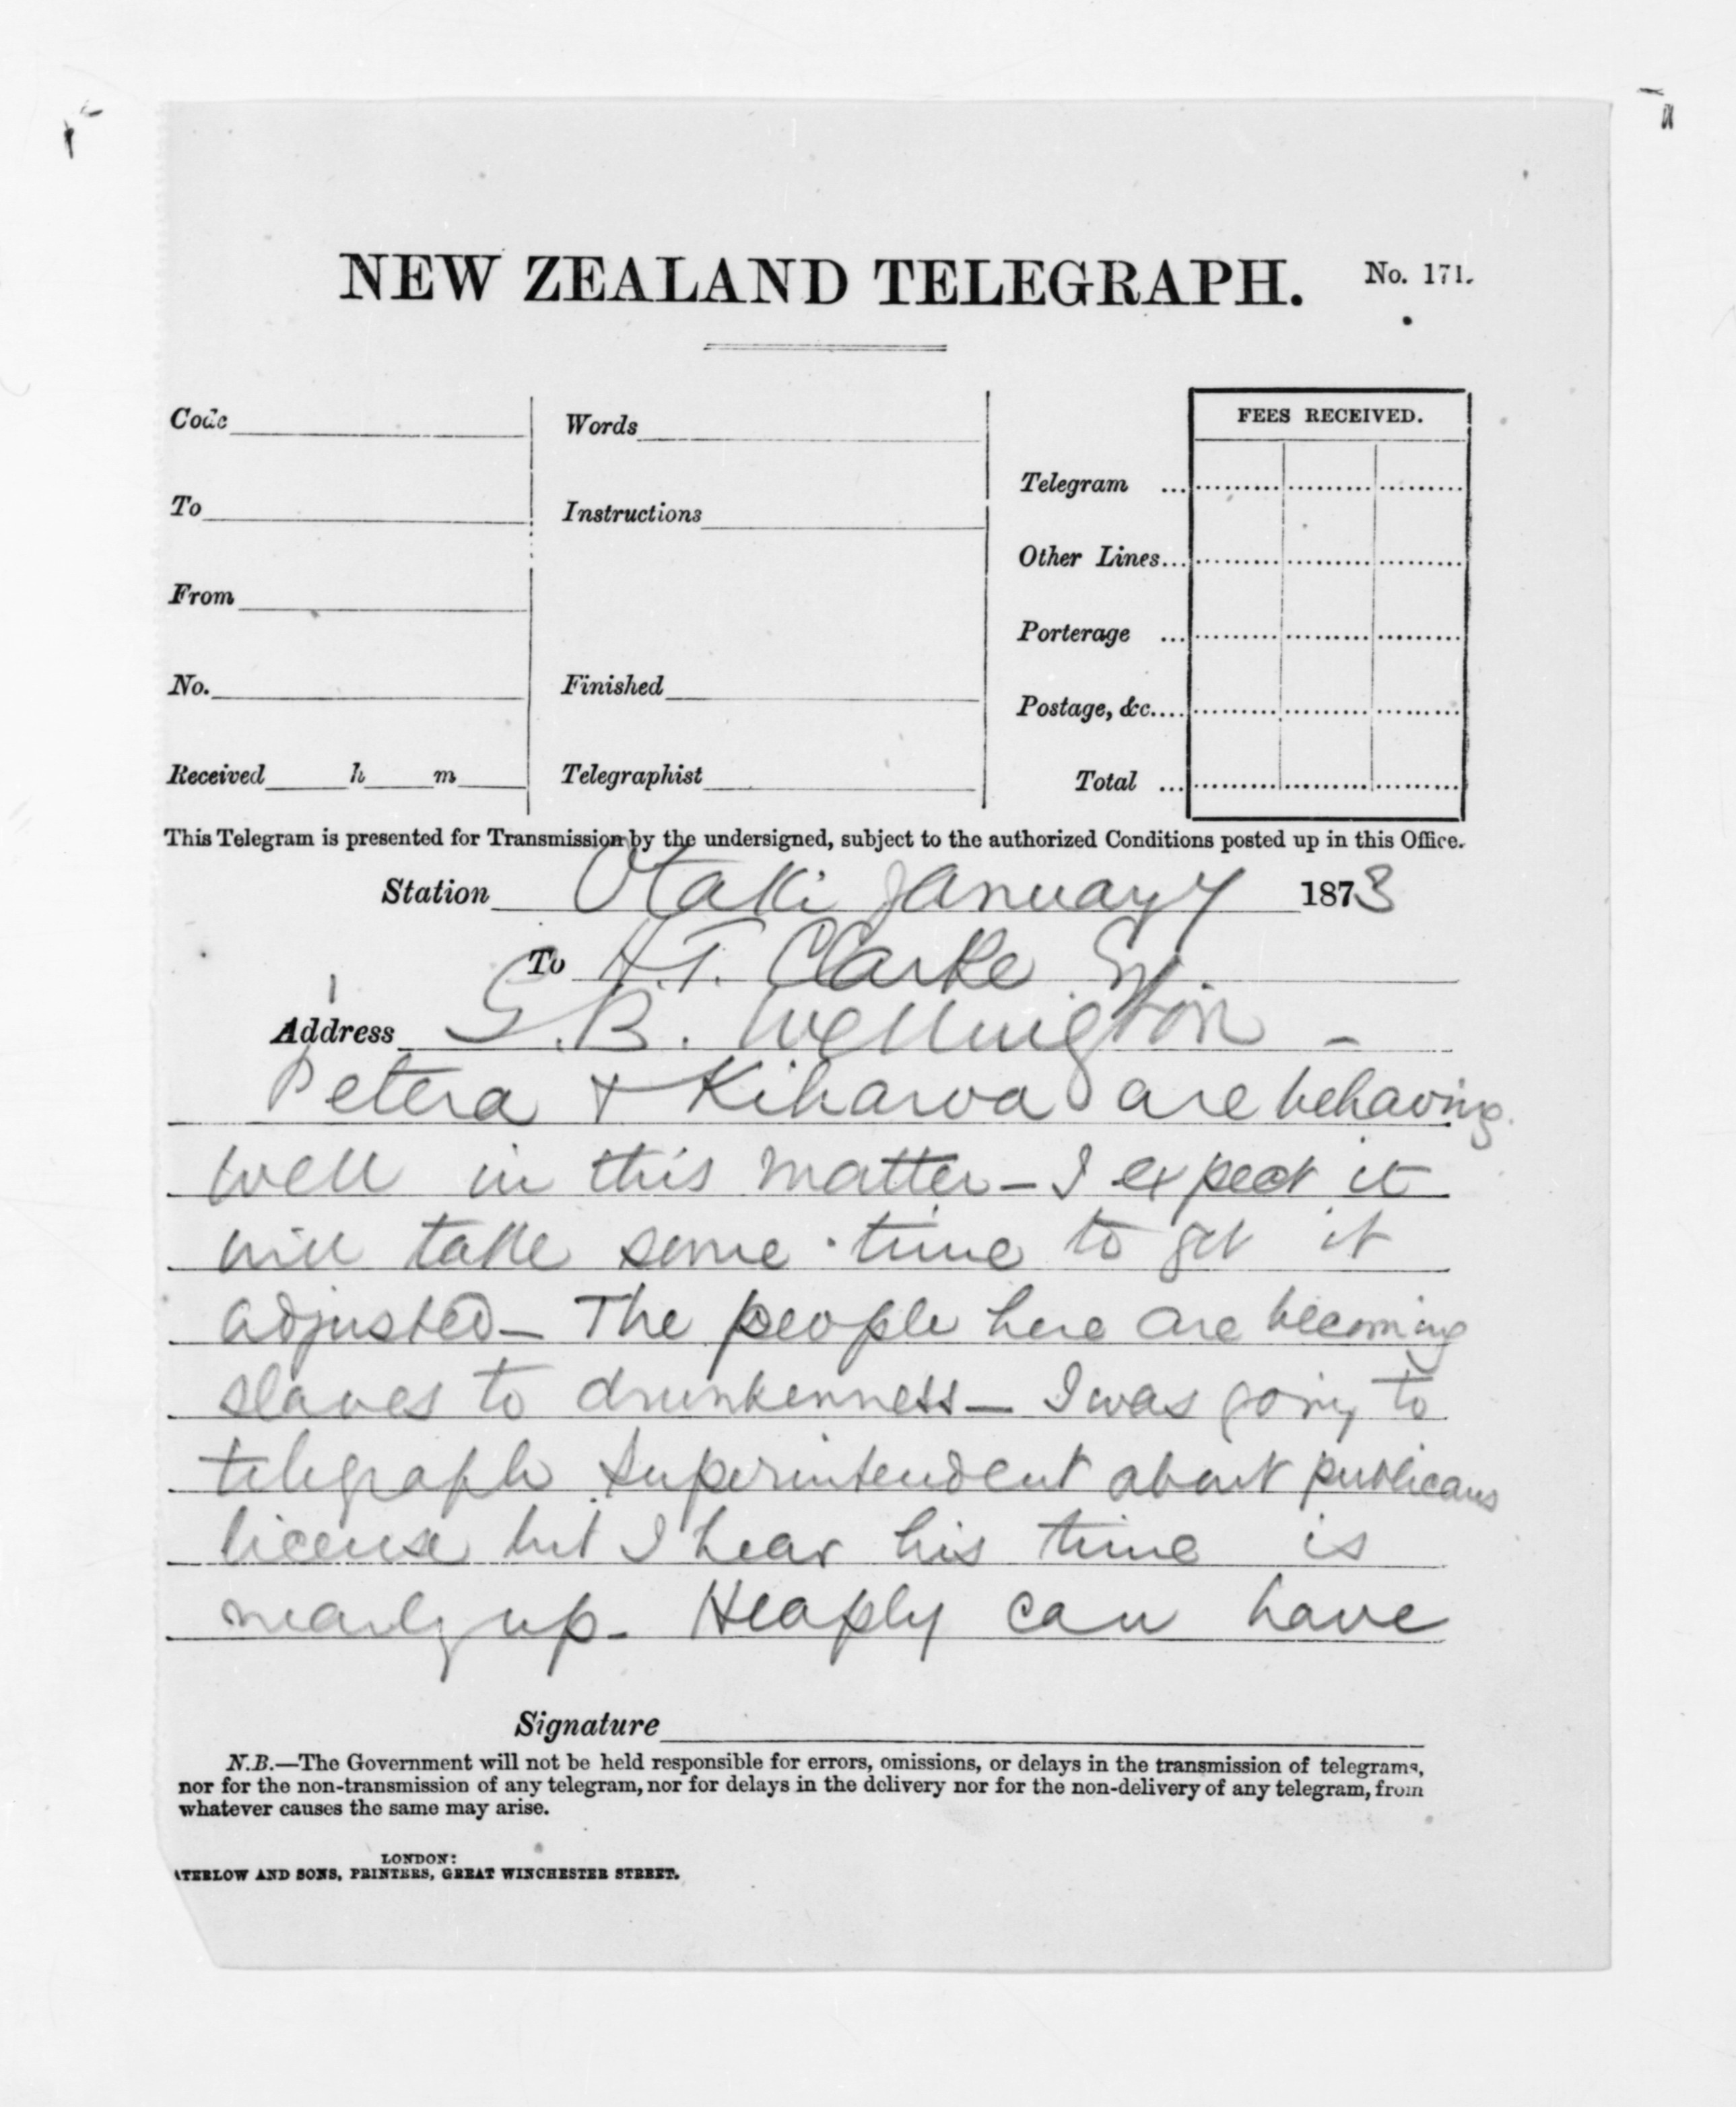 NEW ZEALAND TELEGRAPH. No. 171.
Code
Words
FEES RECEIVED.
Telegram ...
To
Instructions
Other Lines...
From
Porterage ...
No.
Finished
Postage, &c....
Received h m
Telegraphist
Total ...
This Telegram is presented for Transmission by the undersigned, subject to the authorized Conditions posted up in this Office.
Station Otaki January 7 1873
To H.T. Clarke Esq
Address G.B. Wellington -
Petera + Kiharoa are behaving
well in this matter - I expect it
will take some time to get it
adjusted - The people here are becoming
slaves to drunkenness - I was going to
telegraph Superintendent about publicans
license but I hear his time is
nearly up - Heaply can have
Signature
N.B.—The Government will not be held responsible for errors, omissions, or delays in the transmission of telegrams,
nor for the non-transmission of any telegram, nor for delays in the delivery nor for the non-delivery of any telegram, from
whatever causes the same may arise.
LONDON:
ATERLOW AND SONS, PRINTERS, GREAT WINCHESTER STREET.